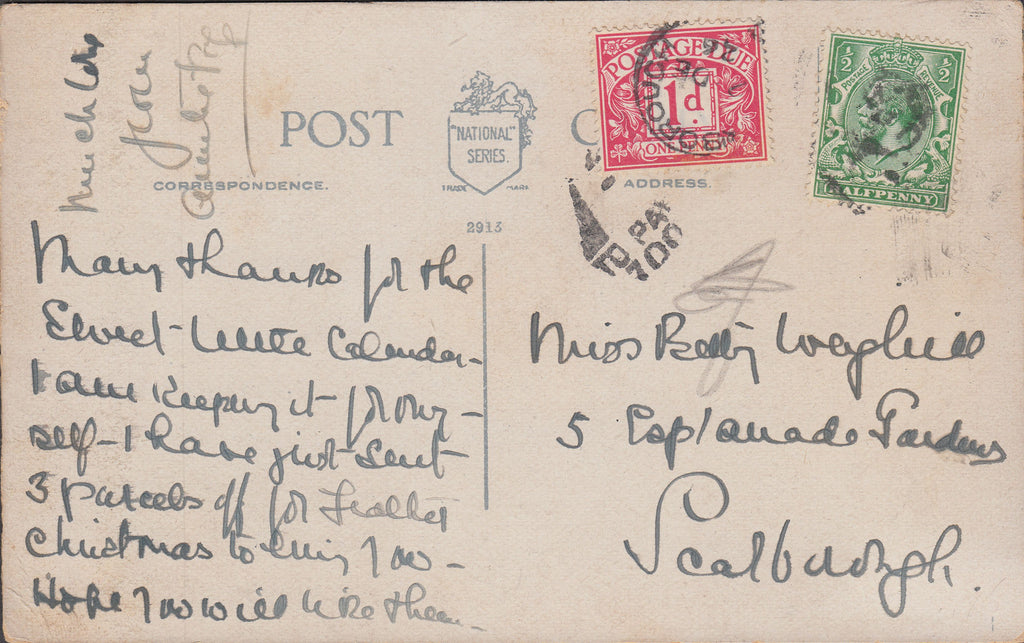 much love
from
Auntie
POST
C
"NATIONAL"
SERIES.
TRADE MARK
CORRESPONDENCE.
ADDRESS.
2913
POSTAGE DUE
1d.
ONE PENNY
½ ½
POSTAGE REVENUE
HALFPENNY
TO PAY
100
Many thanks for the
Sweet little Calendar-
I am keeping it for my-
self - I have just sent
3 parcels off for Father
Christmas to bring you -
Hope you will like them -
Miss Betty Weghill
5 Esplanade Gardens
Scarborough.